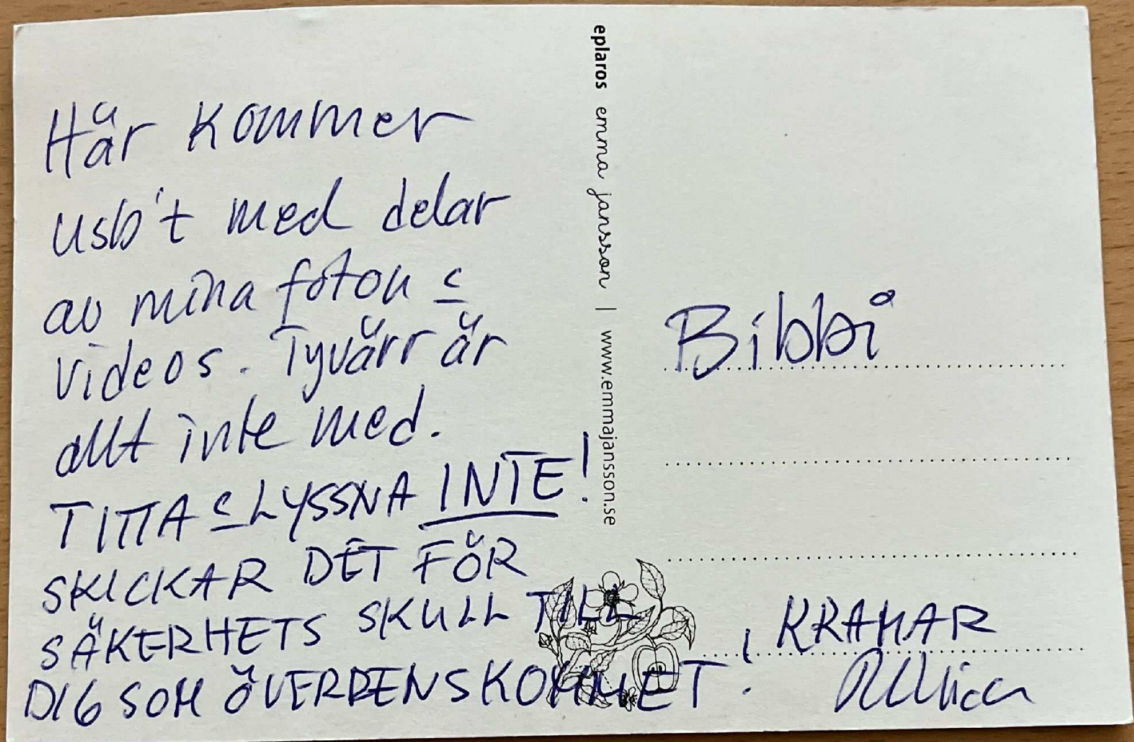 Här kommer
usb't med delar
av mina foton &
videos. Tyvärr är
allt inte med.
TITTA & LYSSNA INTE!
SKICKAR DET FÖR
SÄKERHETS SKULL TILL
DIG SOM ÖVERRENSKOMMET!
eplaros emma jansson | www.emmajansson.se
Bibbi
KRAMAR